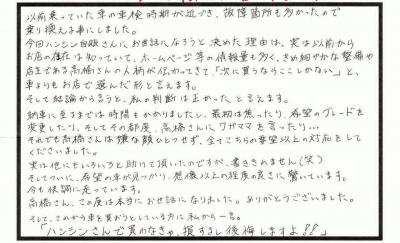 以前乗っていた車の車検時期が近づき、故障箇所も多かったので
乗り換える事にしました。
今回ハンシン自販さんにお世話になろうと決めた理由は、実は以前から
お店の存在は知っていて、ホームページ等の情報量も多く、きめ細やかな整備や
店主である高橋さんの人柄が伝わってきて、「次に買うならここしかない」と、
車よりもお店で選んだ形と言えます。
そして結論から言うと、私の判断は正かったと言えます。
納車に至るまでは時間もかかりましたし、最初は焦ったり、希望のグレードを
変更したり、そしてその都度、高橋さんにワガママを言ったり...
それでも高橋さんは嫌な顔ひとつせず、全てこちらの要望以上の対応をして
くださいました。
実は他にもいろいろと助けて頂いたのですが、書ききれません(笑)
そしてついに、希望の車が見つかり、想像以上の程度の良さに驚いています。
今も快調に走っています。
高橋さん、この度は本当にお世話になりました。ありがとうございました。
そして、これから車を買おうとしている方に私から一言。
「ハンシンさんで買わなきゃ、損するし後悔しますよ!!」